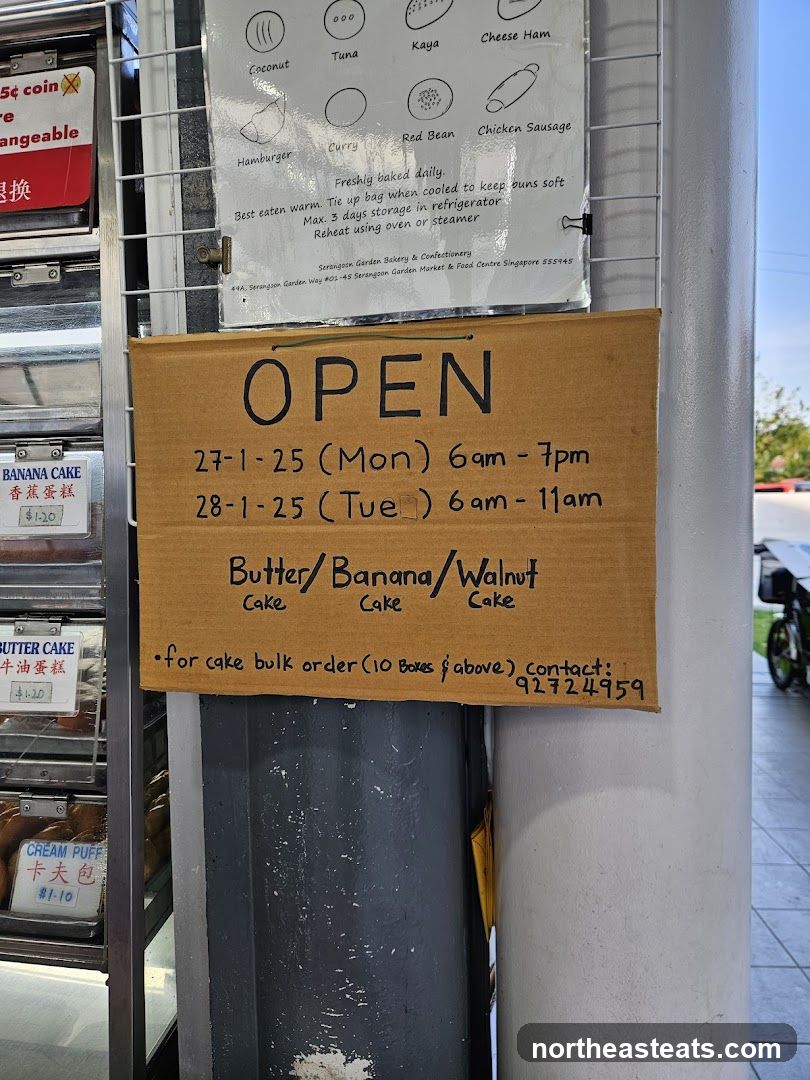 Coconut
Tuna
Kaya
Cheese Ham
Hamburger
Curry
Red Bean
Chicken Sausage
Freshly baked daily.
Best eaten warm. Tie up bag when cooled to keep buns soft
Max. 3 days storage in refrigerator
Reheat using oven or steamer
Serangoon Garden Bakery & Confectionery
49A, Serangoon Garden Way #01-45 Serangoon Garden Market & Food Centre Singapore 555945
5¢ coin
re
angeable
退换
OPEN
27-1-25 (Mon) 6am - 7pm
28-1-25 (Tue) 6am - 11am
Butter/Banana/Walnut
Cake Cake Cake
•for cake bulk order (10 Boxes & above) contact:
92724959
BANANA CAKE
香蕉蛋糕
$1.20
BUTTER CAKE
牛油蛋糕
$1.20
CREAM PUFF
卡夫包
$1.10
northeasteats.com